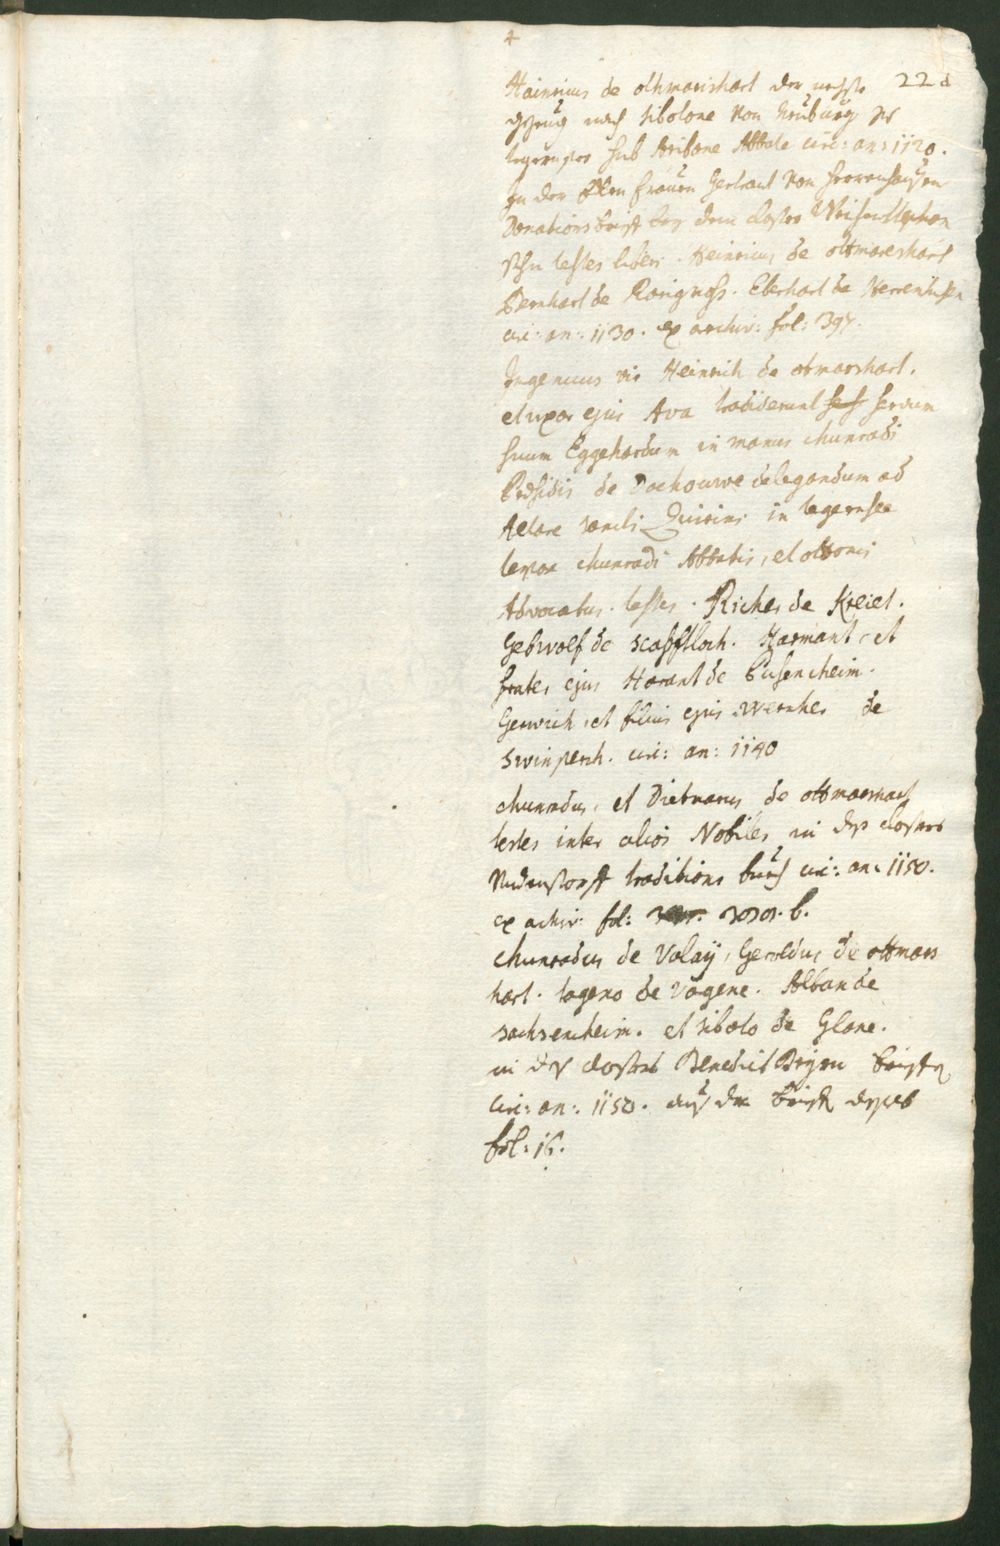 4
22d
Hainricus de othmarishart der nechste
gezeug nach Sibotone von Neuburg zu
Tegernsee sub Aribone Abbate circ: an: 1120.
In der Edlen frauen Gertraut von herrenhausen
Donationsbrieff bey dem Closter Weihenstephan
sein testes liberi. Heinricus de ottmareshart
Bernhart de Eberhart de Herrenhusen
circ: an: 1130. ex archiv: fol: 397.
Ingenuus vir Heinrich de otmarshart.
et uxor ejus Ava tradiderunt servum
suum Eggehardum in manus chunradi
Præsidis de Dachouwe delegandum ad
Altare sancti Quirini in tegernsee
tempore chunradi Abbatis, et ottonis
Advocatus. testes. Richer de Kreiet.
Gebwolf de scafftloch. Harmant, et
frater ejus Harant de Pusencheim.
Gerwich, et filius ejus Wernher de
Swinperch. circ: an: 1140
chunradus, et Dietmarus de ottmarshart
testes inter alios Nobiles, in des closters
Undenstorff traditions buech circ: an: 1150.
ex achiv: fol: b.
Chunradus de Valaÿ, Geroldus de ottmars
hart. tageno de Vagene. Alban de
sachsencheim. et siboto de Glane.
in des closters Benedict Beyrn brieff
circ: an: 1150. aus der brieff
fol: 16.